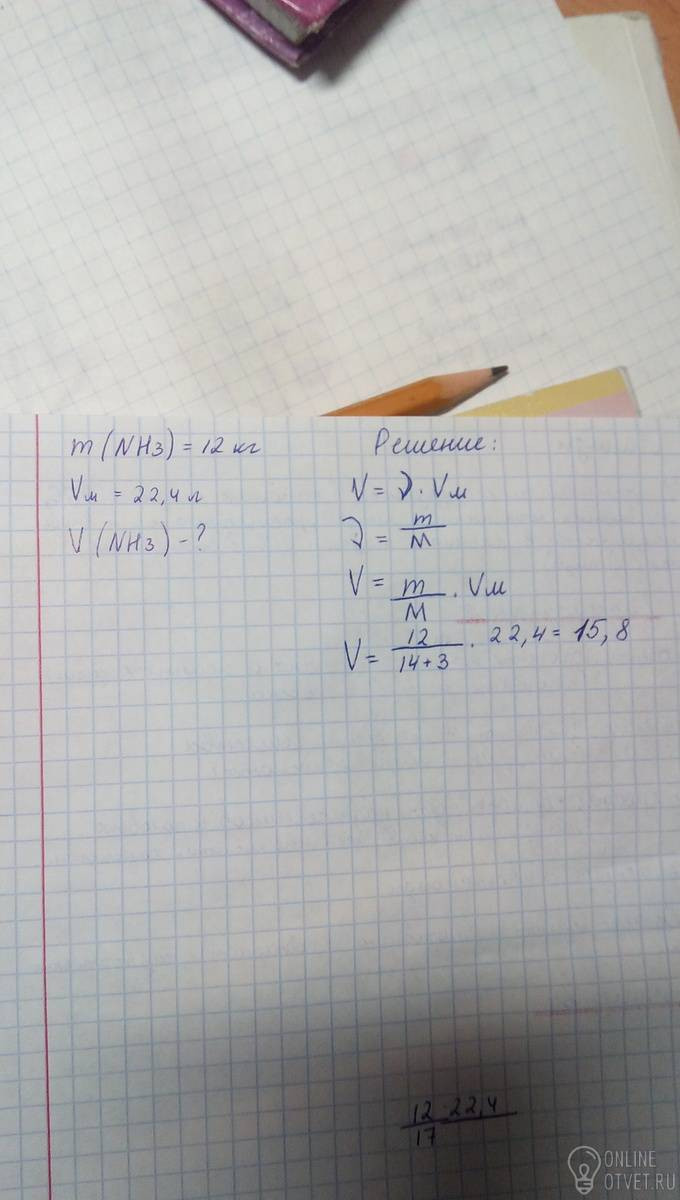 m (NH3) = 12 кг
Vм = 22,4 л
V (NH3) - ?
Решение:
V = ν · Vм
ν = m/M
V = m/M · Vм
V = 12/14+3 · 22,4 = 15,8
12·22,4/17
ONLINE
OTVET.RU